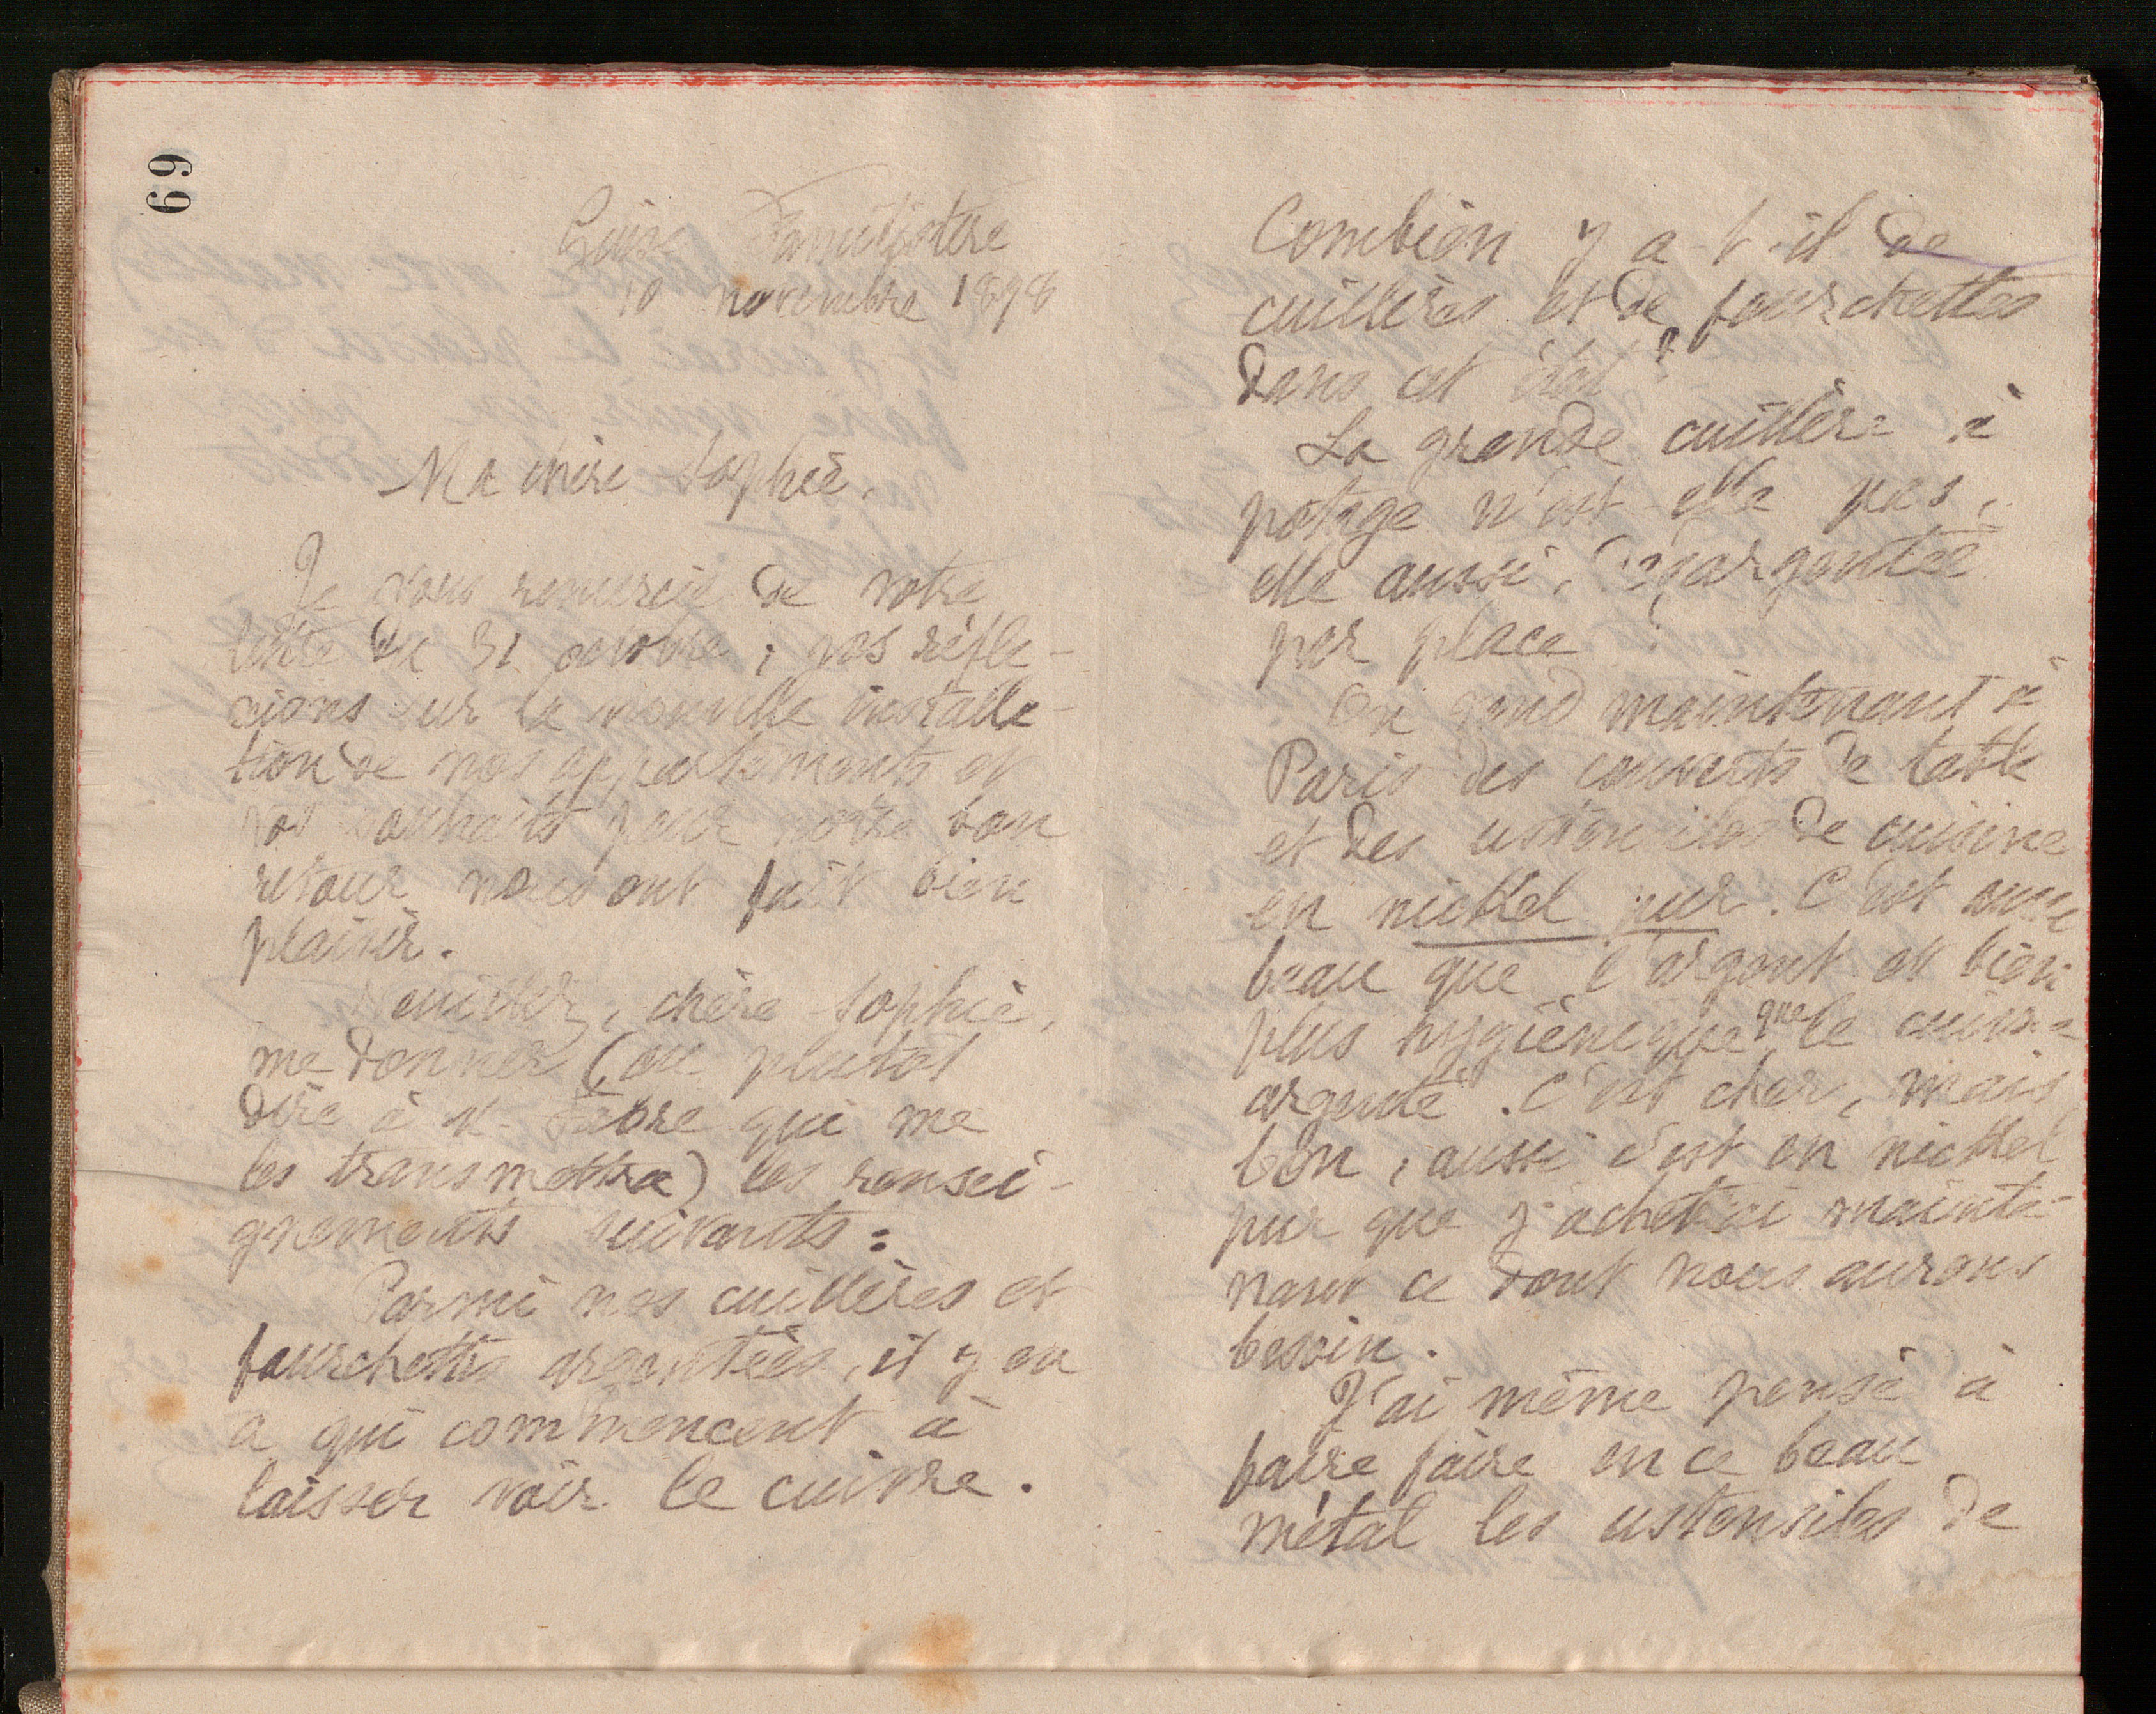 69
Guise Familistère
10 novembre 1898
Ma chère Sophie,
Je vous remercie de votre
lettre du 31 octobre ; vos réfle-
xions sur la nouvelle installa-
tion de nos appartements et
vos souhaits pour notre bon
retour nous ont fait bien
plaisir.
Veuillez, chère Sophie,
me donner (ou plutôt
dire à M. Fabre qui me
les transmettra) les rensei-
gnements suivants :
Parmi nos cuillères et
fourchettes argentées, il y en
a qui commencent à
laisser voir le cuivre.
Combien y a-t-il de
cuillères et de fourchettes
dans cet état ?
La grande cuillère à
potage n'est-elle pas,
elle aussi, désargentée
par place ?
On vend maintenant à
Paris des couverts de table
et des ustensiles de cuisine
en nickel pur. C'est aussi
beau que l'argent et bien
plus hygiénique que le cuivre
argenté. C'est cher, mais
bon, aussi c'est en nickel
pur que j'achèterai mainte-
nant ce dont nous aurons
besoin.
J'ai même pensé à
faire faire en ce beau
métal les ustensiles de